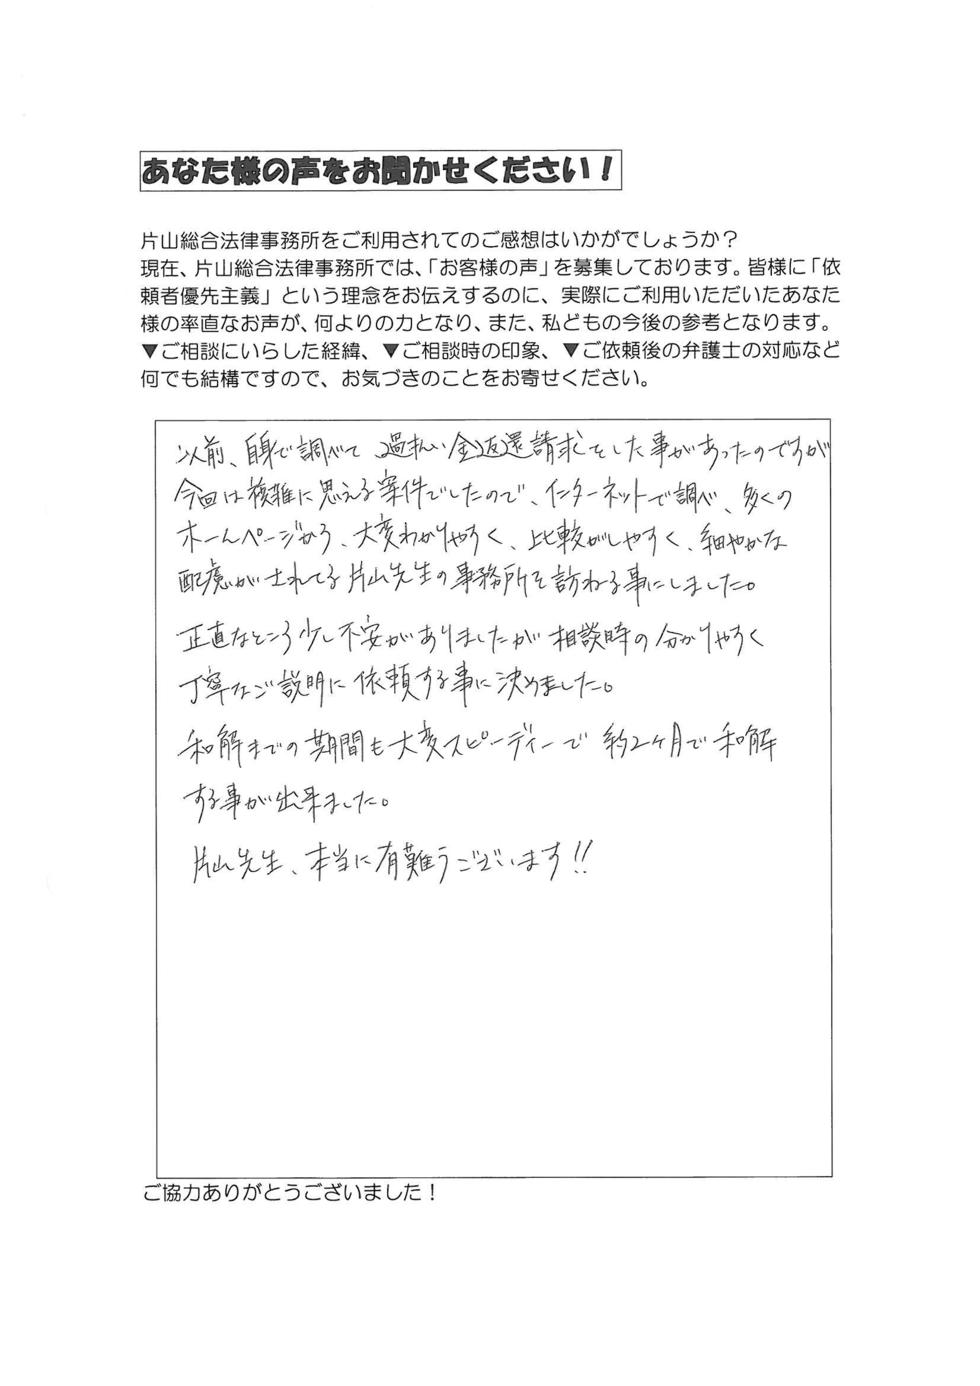 あなた様の声をお聞かせください！
片山総合法律事務所をご利用されてのご感想はいかがでしょうか？
現在、片山総合法律事務所では、「お客様の声」を募集しております。皆様に「依
頼者優先主義」という理念をお伝えするのに、実際にご利用いただいたあなた
様の率直なお声が、何よりの力となり、また、私どもの今後の参考となります。
▼ご相談にいらした経緯、▼ご相談時の印象、▼ご依頼後の弁護士の対応など
何でも結構ですので、お気づきのことをお寄せください。
以前、自身で調べて過払い金返還請求をした事があったのですが
今回は複雑に思える案件でしたので、インターネットで調べ、多くの
ホームページから、大変わかりやすく、比較がしやすく、細やかな
配慮がされてる片山先生の事務所を訪ねる事にしました。
正直なところ少し不安がありましたが相談時の分かりやすく
丁寧なご説明に依頼する事に決めました。
和解までの期間も大変スピーディーで約2ヶ月で和解
する事が出来ました。
片山先生、本当に有難うございます!!
ご協力ありがとうございました！